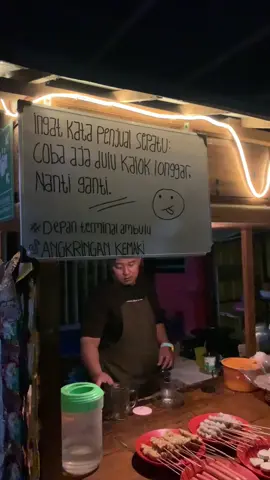 Ingat kata penjual sepatu:
Coba aja dulu kalok longgar,
Nanti ganti.
#Depan terminal ambulu
#ANGKRINGAN KEMAKI